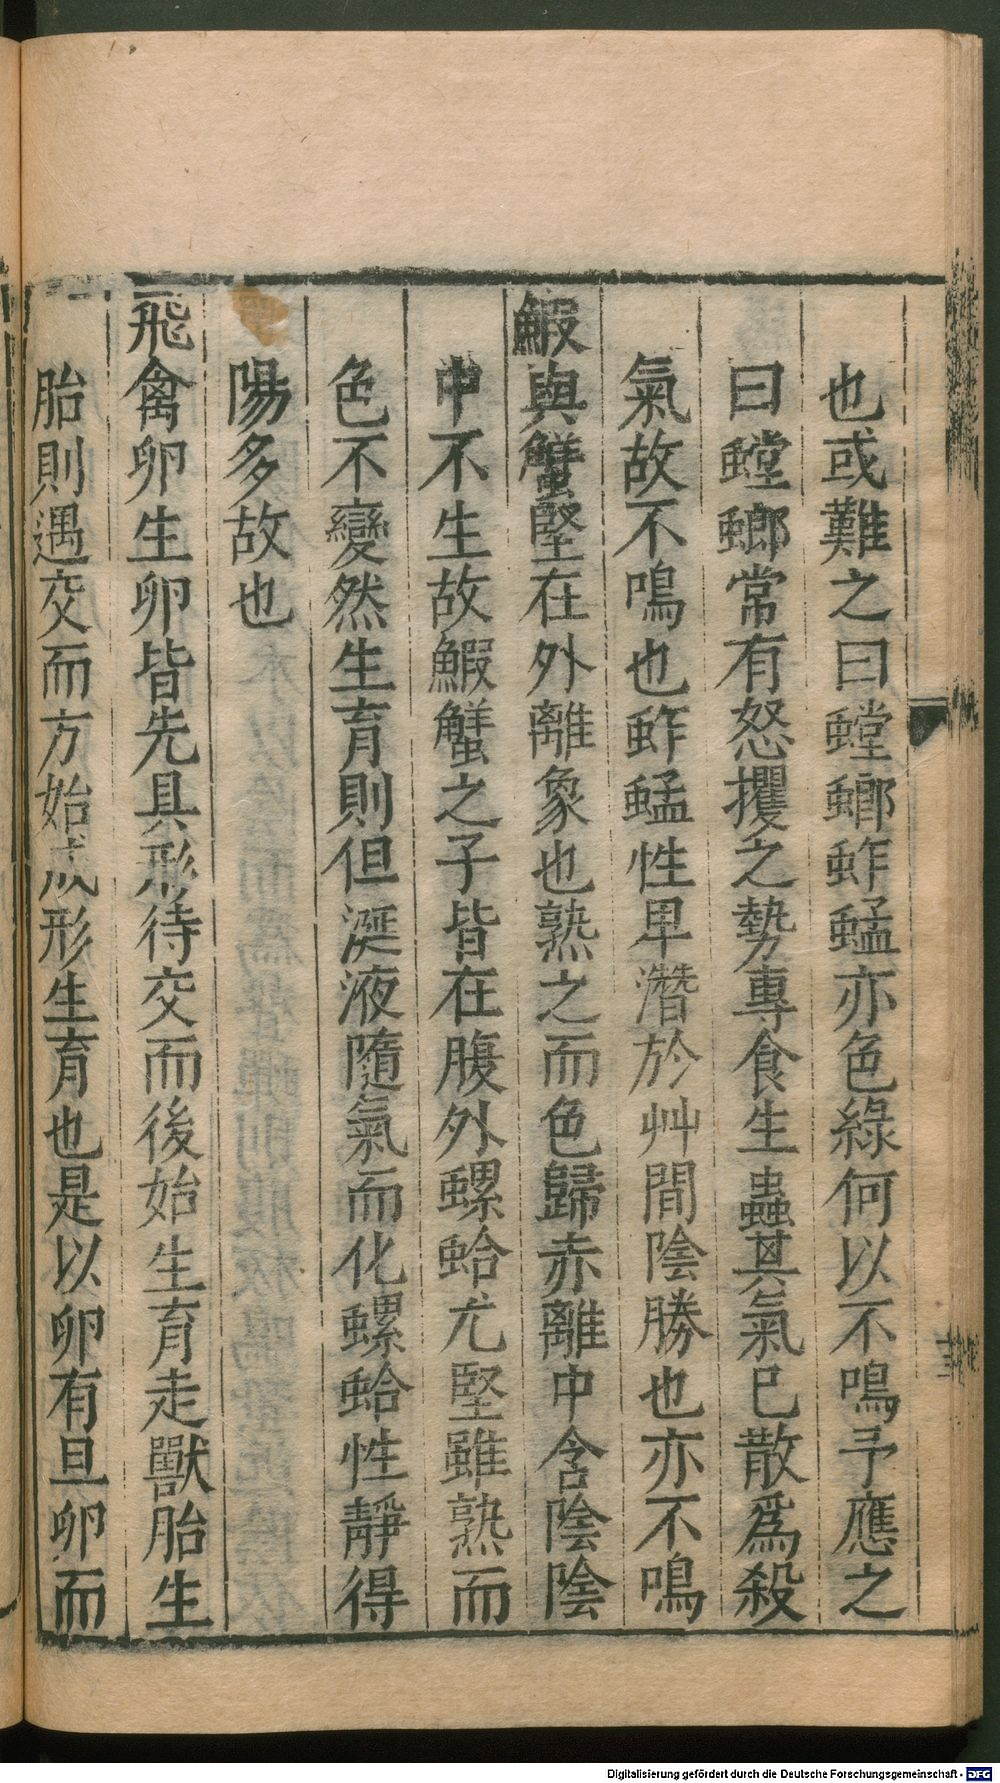 也或難之曰螳螂蚱蜢亦色綠何以不鳴予應之
曰螳螂常有怒攫之勢專食生蟲其氣已散爲殺
氣故不鳴也蚱蜢性卑潛於艸間陰勝也亦不鳴
鰕與蟹堅在外離象也熟之而色歸赤離中含陰陰
中不生故鰕蟹之子皆在腹外螺蛤尤堅雖熟而
色不變然生育則但涎液隨氣而化螺蛤性靜得
陽多故也
飛禽卵生卵皆先具形待交而後始生育走獸胎生
胎則遇交而方始成形生育也是以卵有旦卵而
Digitalisierung gefördert durch die Deutsche Forschungsgemeinschaft - DFG